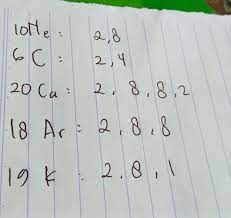 10He : 2,8
6 C : 2,4
20 Ca : 2, 8, 8, 2
18 Ar = 2, 8, 8
19 K : 2, 8, 1